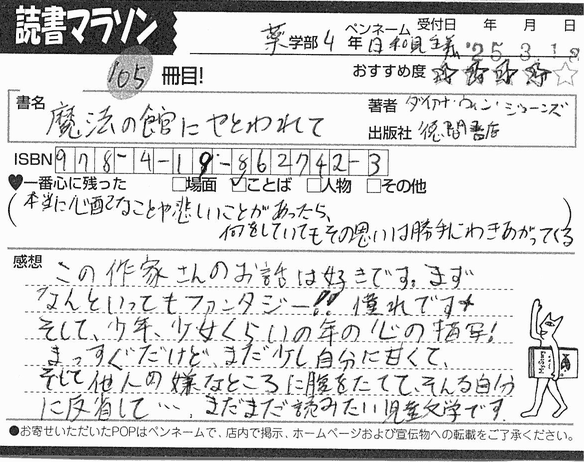 読書マラソン
薬学部4年 ペンネーム 日和見主義 受付日 '25.3.1 年 月 日
105冊目!
おすすめ度 ★★★★☆
書名 魔法の館にやとわれて
著者 ダイアナ・ウィン・ジョーンズ
出版社 徳間書店
ISBN 978-4-19-862742-3
♥一番心に残った □場面 ☑ことば □人物 □その他
(本当に心配なことや悲しいことがあったら、
何をしていてもその思いは勝手にわきあがってくる)
感想
この作家さんのお話は好きです。まず
なんといってもファンタジー!! 憧れです
そして、少年、少女くらいの年の心の描写!
まっすぐだけど、まだ少し自分に甘くて、
そして他人の嫌なところに腹をたてて、そんな自分
に反省して…、まだまだ読みたい児童文学です。
●お寄せいただいたPOPはペンネームで、店内で掲示、ホームページおよび宣伝物への転載をご了承ください。